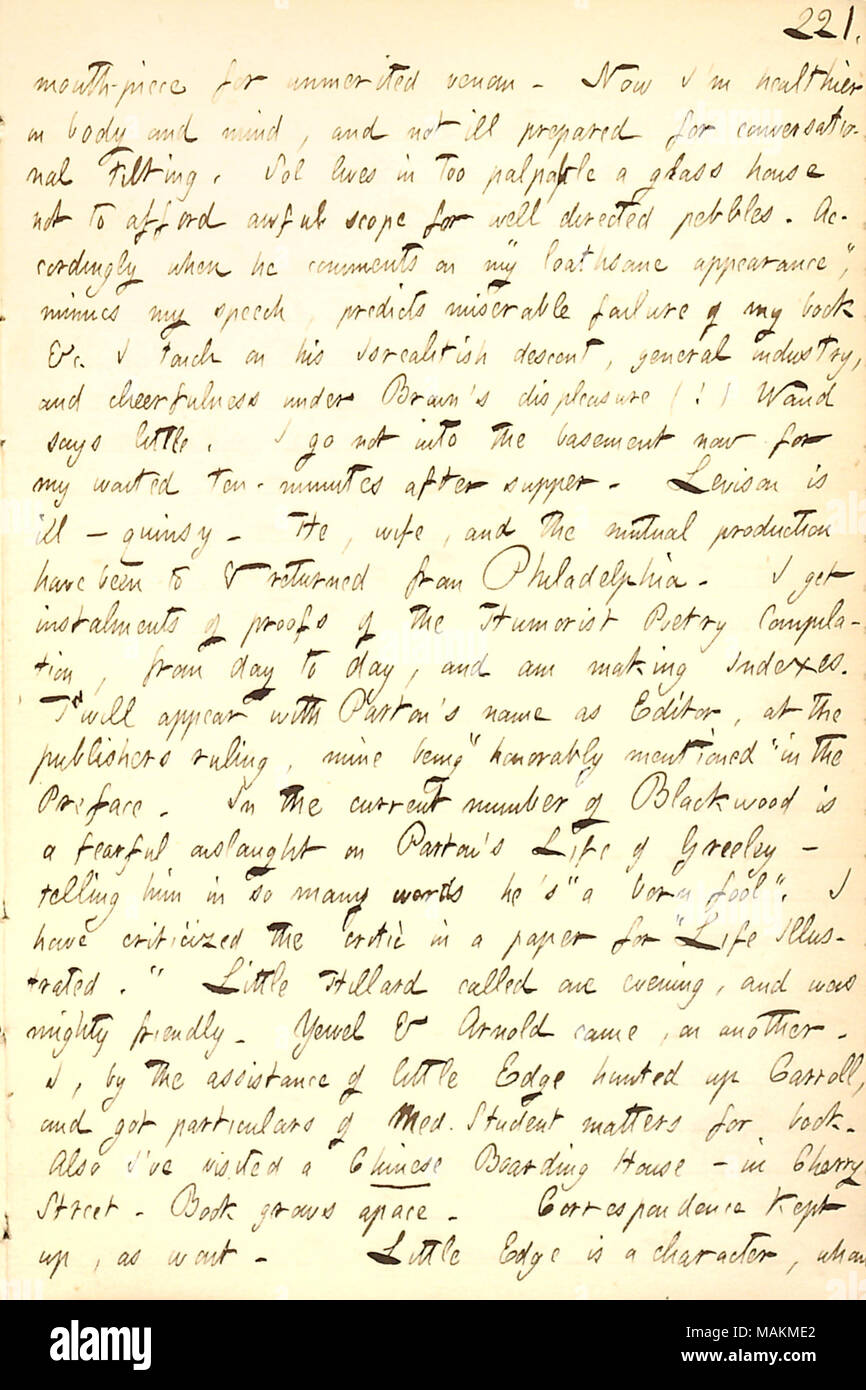 221.
mouth-piece for unmerited venom - Now I'm healthier
in body and mind, and not ill prepared for conversatio-
nal tilting. Sol lives in too palpable a glass house
not to afford awful scope for well directed pebbles. Ac-
cordingly when he comments on my "loathsome appearance",
mimics my speech, predicts miserable failure of my book
&c. I touch on his Isrealitish descent, general industry,
and cheerfulness under Brown's displeasure (!) Waud
says little. I go not into the basement now for
my wonted ten-minutes after supper - Levison is
ill - quinsy - He, wife, and the mutual production
have been to & returned from Philadelphia - I get
instalments of proofs of the Humorist Poetry Compila-
tion, from day to day, and am making Indexes.
T'will appear with Parton's name as Editor, at the
publishers ruling, mine being "honorably mentioned" in the
Preface. In the current number of Blackwood is
a fearful onslaught on Parton's Life of Greeley -
telling him in so many words he's "a born fool". I
have criticized the critic in a paper for "Life Illus-
trated." Little Hillard called one evening, and was
mighty friendly - Yewel & Arnold came, on another -
I, by the assistance of little Edge hunted up Carroll,
and got particulars of Med. Student matters for book.
Also I've visited a Chinese Boarding House - in Cherry
Street - Book grows apace - Correspondence kept
up, as wont - Little Edge is a character, whom
alamy
Image ID: MAKME2
www.alamy.com